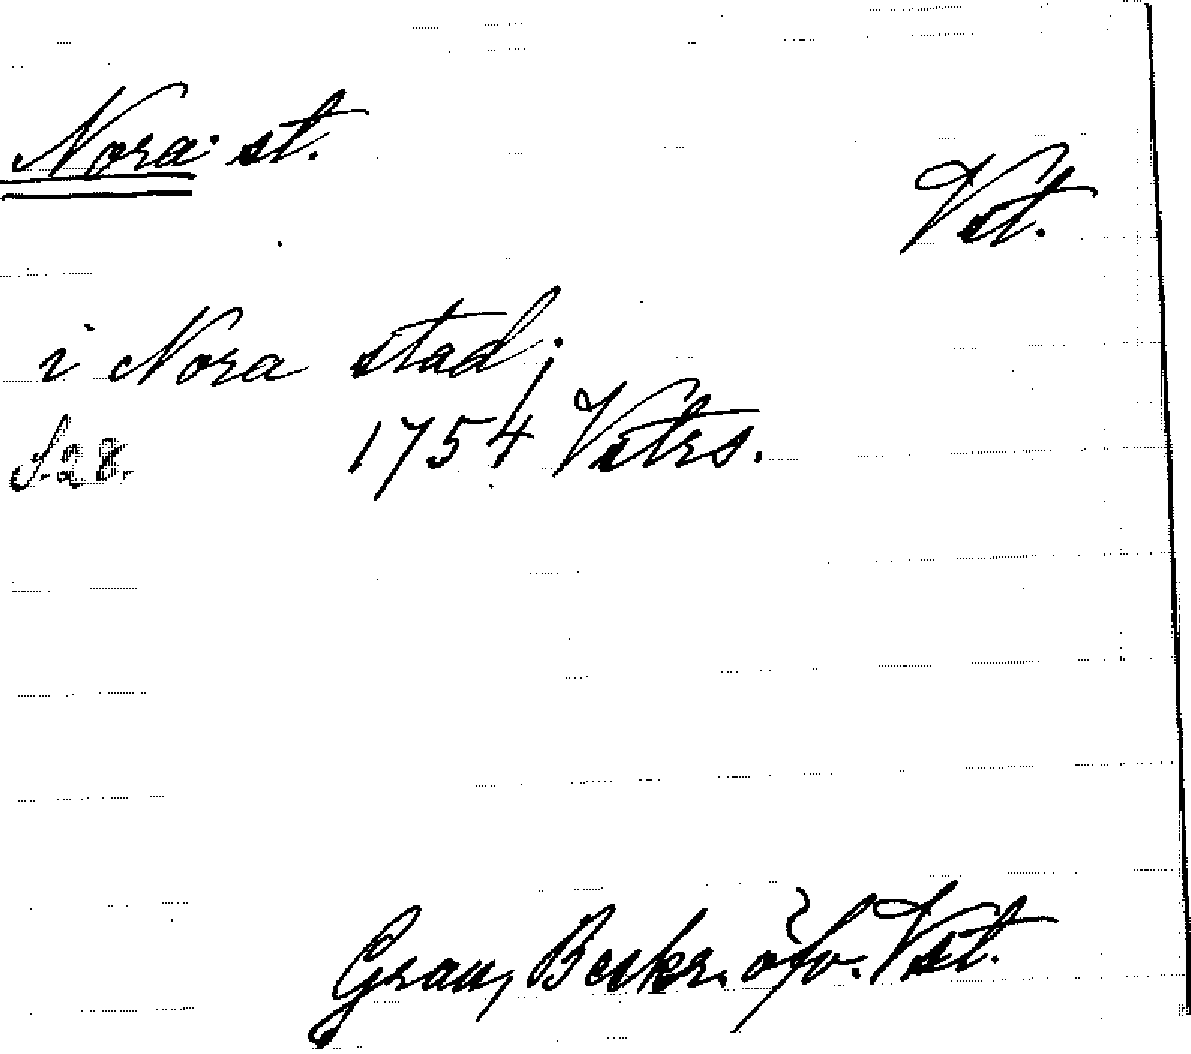 Nora st.
Vst.
i Nora stad;
S. 28. 1754 Vstrs.
Grau, Beskr. öfv. Vst.